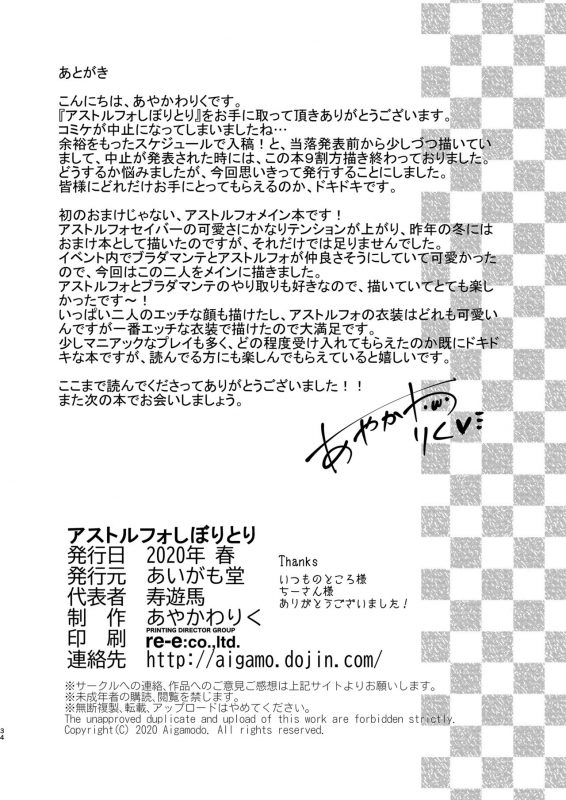 あとがき
こんにちは、あやかわりくです。
『アストルフォしぼりとり』をお手に取って頂きありがとうございます。
コミケが中止になってしまいましたね…
余裕をもったスケジュールで入稿！と、当落発表前から少しづつ描いてい
まして、中止が発表された時には、この本9割方描き終わっておりました。
どうするか悩みましたが、今回思いきって発行することにしました。
皆様にどれだけお手にとってもらえるのか、ドキドキです。
初のおまけじゃない、アストルフォメイン本です！
アストルフォセイバーの可愛さにかなりテンションが上がり、昨年の冬には
おまけ本として描いたのですが、それだけでは足りませんでした。
イベント内でブラダマンテとアストルフォが仲良さそうにしていて可愛かった
ので、今回はこの二人をメインに描きました。
アストルフォとブラダマンテのやり取りも好きなので、描いていてとても楽し
かったです～！
いっぱい二人のエッチな顔も描けたし、アストルフォの衣装はどれも可愛い
んですが一番エッチな衣装で描けたので大満足です。
少しマニアックなプレイも多く、どの程度受け入れてもらえたのか既にドキド
キな本ですが、読んでる方にも楽しんでもらえていると嬉しいです。
ここまで読んでくださってありがとうございました！！
また次の本でお会いしましょう。
あやかわ
りく
アストルフォしぼりとり
発行日 2020年 春
発行元 あいがも堂
代表者 寿遊馬
制 作 あやかわりく
PRINTING DIRECTOR GROUP
印 刷 re-e:co.,ltd.
連絡先 http://aigamo.dojin.com/
Thanks
いつものところ様
ちーさん様
ありがとうございました！
※サークルへの連絡、作品へのご意見ご感想は上記サイトよりお願いします。
※未成年者の購読、閲覧を禁じます。
※無断複製、転載、アップロードはやめてください。
The unapproved duplicate and upload of this work are forbidden strictly.
Copyright(C) 2020 Aigamodo. All rights reserved.
34